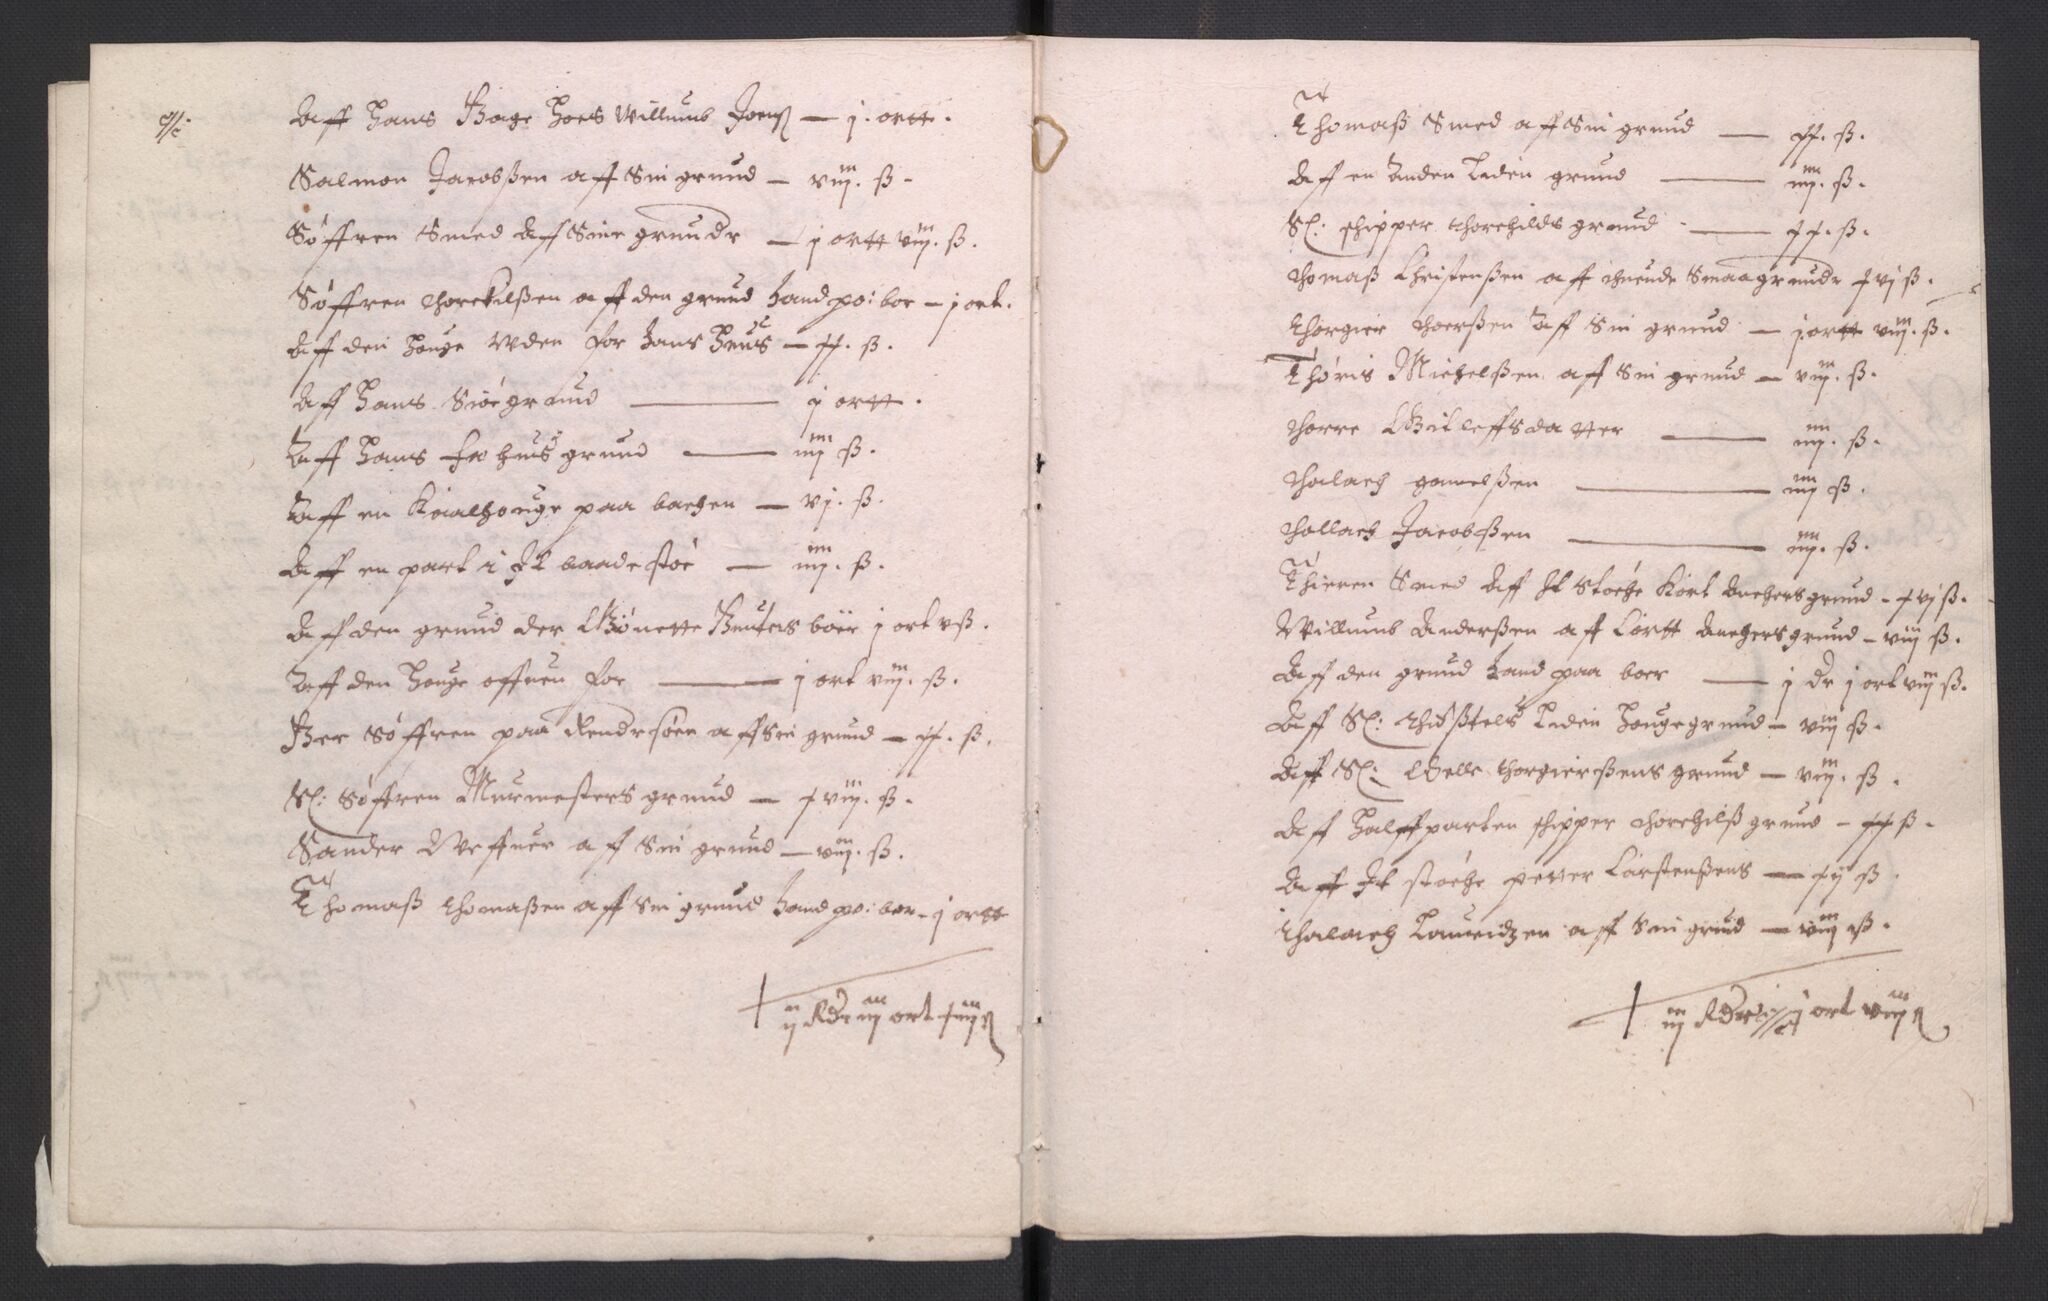 Aff Hans Hage hoes Willumb Joenß — j. ortt.
Salmon Jacobßen aff Sin grund — viij. ß.
Søffren Smed Aff Sine grunde — j ortt viij. ß.
Søffren thorckilßen aff den grund hand po: bor — j ort.
Aff den Houge Uden for hans Huus — xx. ß.
Aff Hans Siøe grund — j ortt.
Aff Hans fæhuus grund — iiij ß.
Aff en Kaalhouge paa backen — vj. ß.
Aff en part i Jt baadestøe — iiij. ß.
Aff den grund der Bønette boer j ort x ß.
Aff den Houge offuen for — j ort viij. ß.
Her Søffren paa Rendesøen aff Sin grund — xx. ß.
Sl: Søffren Murmesters grund — xviij. ß.
Sander Weffuer aff Sin grund — viij. ß.
Thomaß thomaßen aff Sin grund hand po: bor — j ortt
ij Rdr iij ort xiiij ß
Thomaß Smed aff Sin grund — xx. ß.
Aff en Anden Laden grund — iiij. ß.
Sl: schipper thorchilds grund — xx. ß.
thomaß Christenßen aff thuende Smaa grunde xvj ß.
thorgier thorßen Aff Sin grund — j ortt viij. ß.
Thøris Michelßen aff Sin grund — viij. ß.
thorre Gitleffsdatter — iiij. ß.
thalach gamelßen — iiij ß.
thollach Jacobßen — iiij. ß.
Thieren Smed Aff Jt støche Kort Anchers grund — xvj ß.
Willumb Anderßen aff Cortt Anchers grund — viij ß.
Aff den grund hand paa boer — j dr j ort viij ß.
Aff Sl: Laden Houge grund — viij ß.
Aff Sl: Helle thorgierßens grund — viij. ß.
Aff Halffparten schipper thorchilß grund — xx ß.
Aff Jt støche petter Carstenßens — xij ß.
thalach Lauridzen aff Sin grund — viij ß.
iij Rdr j ort viij ß